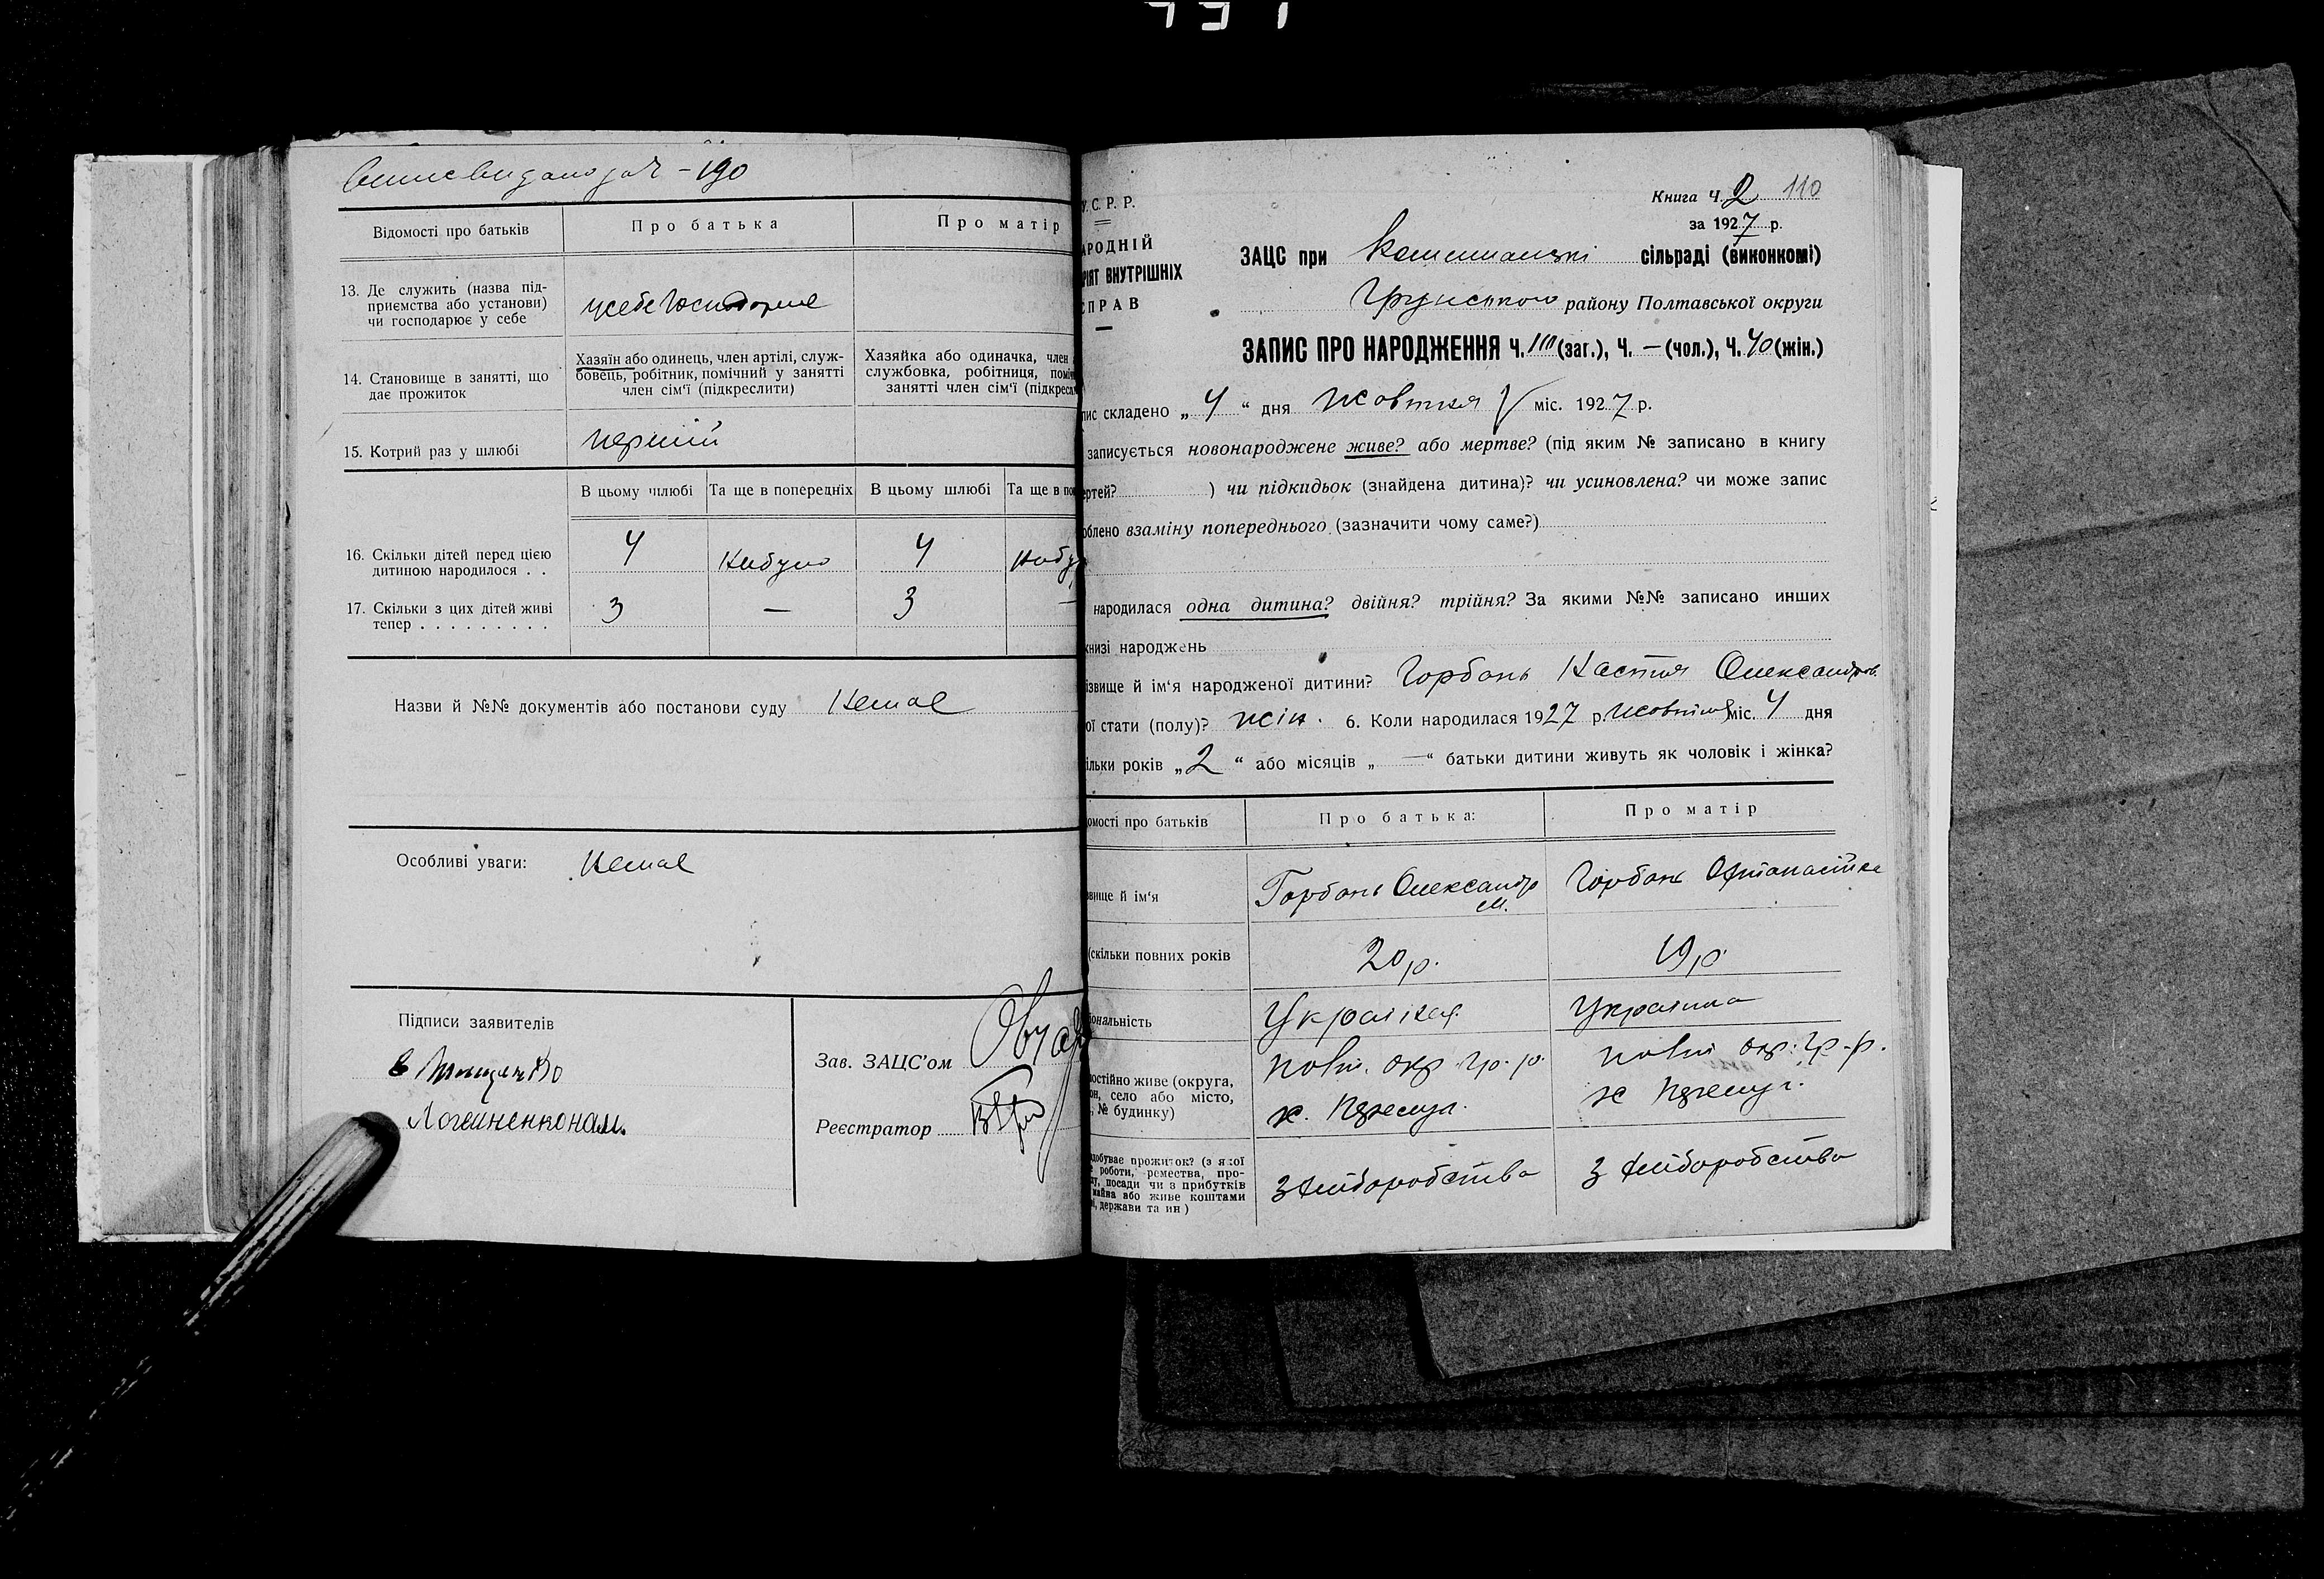 190
Відомості про батьків
Про батька
Про матір
13. Де служить (назва під-
приємства або установи)
чи господарює у себе
14. Становище в занятті, що
дає прожиток
Хазяїн або одинець, член артілі, служ-
бовець, робітник, помічний у занятті
член сім'ї (підкреслити)
Хазяйка або одиначка, член
службовка, робітниця,
занятті член сім'ї
15. Котрий раз у шлюбі
перший
В цьому шлюбі
Та ще в попередніх
В цьому шлюбі
Та ще в
16. Скільки дітей перед цією
дитиною народилося . .
4
Небуло
4
17. Скільки з цих дітей живі
тепер . . . . . . . . .
3
—
3
Назви й №№ документів або постанови суду Немає
Особливі уваги: Немає
Підписи заявителів
Зав. ЗАЦС'ом
Реєстратор
У.С.Р.Р.
АРОДНІЙ
РІЯТ ВНУТРІШНІХ
СПРАВ
Книга Ч. 2 110
за 1927 р.
ЗАЦС при сільраді (виконкомі)
Грунського району Полтавської округи
ЗАПИС ПРО НАРОДЖЕННЯ Ч. 110 (заг.), Ч. — (чол.), Ч. 40 (жін.)
пис складено „ 4 “ дня жовтня міс. 1927 р.
записується новонароджене живе? або мертве? (під яким № записано в книгу
ертей? ) чи підкидьок (знайдена дитина)? чи усиновлена? чи може запис
облено взаміну попереднього (зазначити чому саме?)
народилася одна дитина? двійня? трійня? За якими №№ записано инших
книзі народжень
ізвище й ім'я народженої дитини? Горбань Настя Олександров.
ої стати (полу)? жін. 6. Коли народилася 1927 р. жовтня міс. 4 дня
ільки років „ 2 “ або місяців „ — “ батьки дитини живуть як чоловік і жінка?
омості про батьків
Про батька:
Про матір
звище й ім'я
Горбань Олександр
М.
Горбань
(скільки повних років
20 р.
19 р.
іональність
Українец.
Українка
остійно живе (округа,
он, село або місто,
, № будинку)
Полт. окр. Гр. р.
х.
Полт. окр. Гр. р.
х.
добуває прожиток? (з якої
роботи, ремества, про-
, посади чи з прибутків
майна або живе коштами
, держави та ин)
З хліборобства
З хліборобства